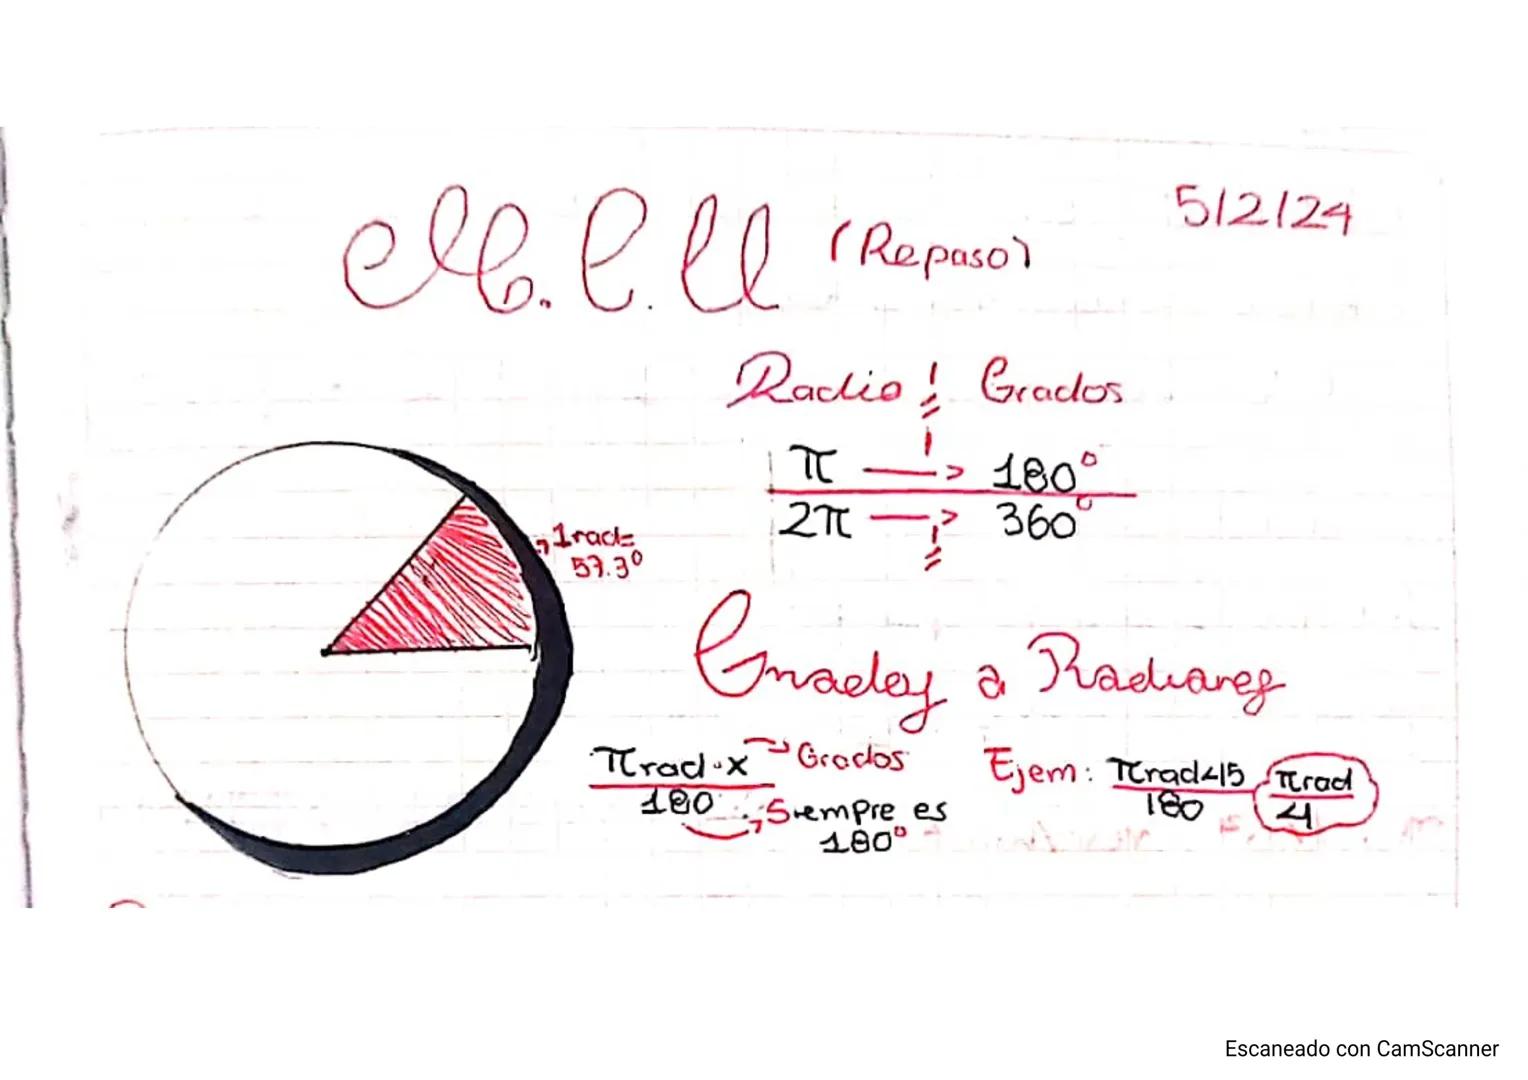 M.C.U (Repaso)
5/2/24
Radio Grados
π —> 180°
2π —> 360°
1rad=
57.3°
Grados a Radianes
πrad·x → Grados
180 → Siempre es
180°
Ejem: πrad45
180
πrad
4
Escaneado con CamScanner